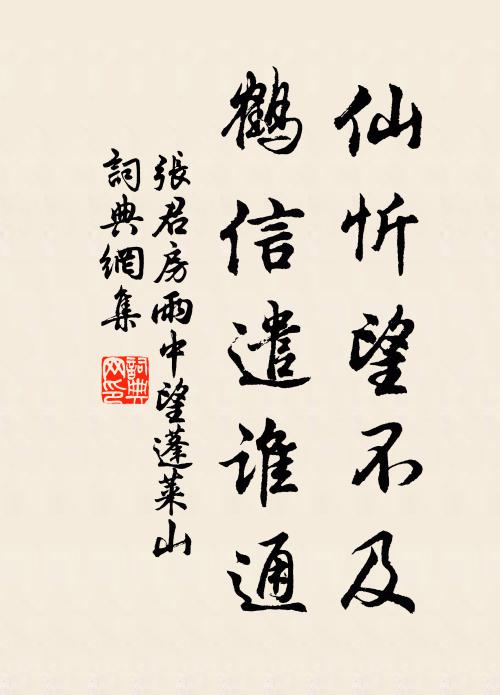 仙忻望不及
鶴信遣誰通
張君房雨中望蓬萊山
詞典網集
詞典網印